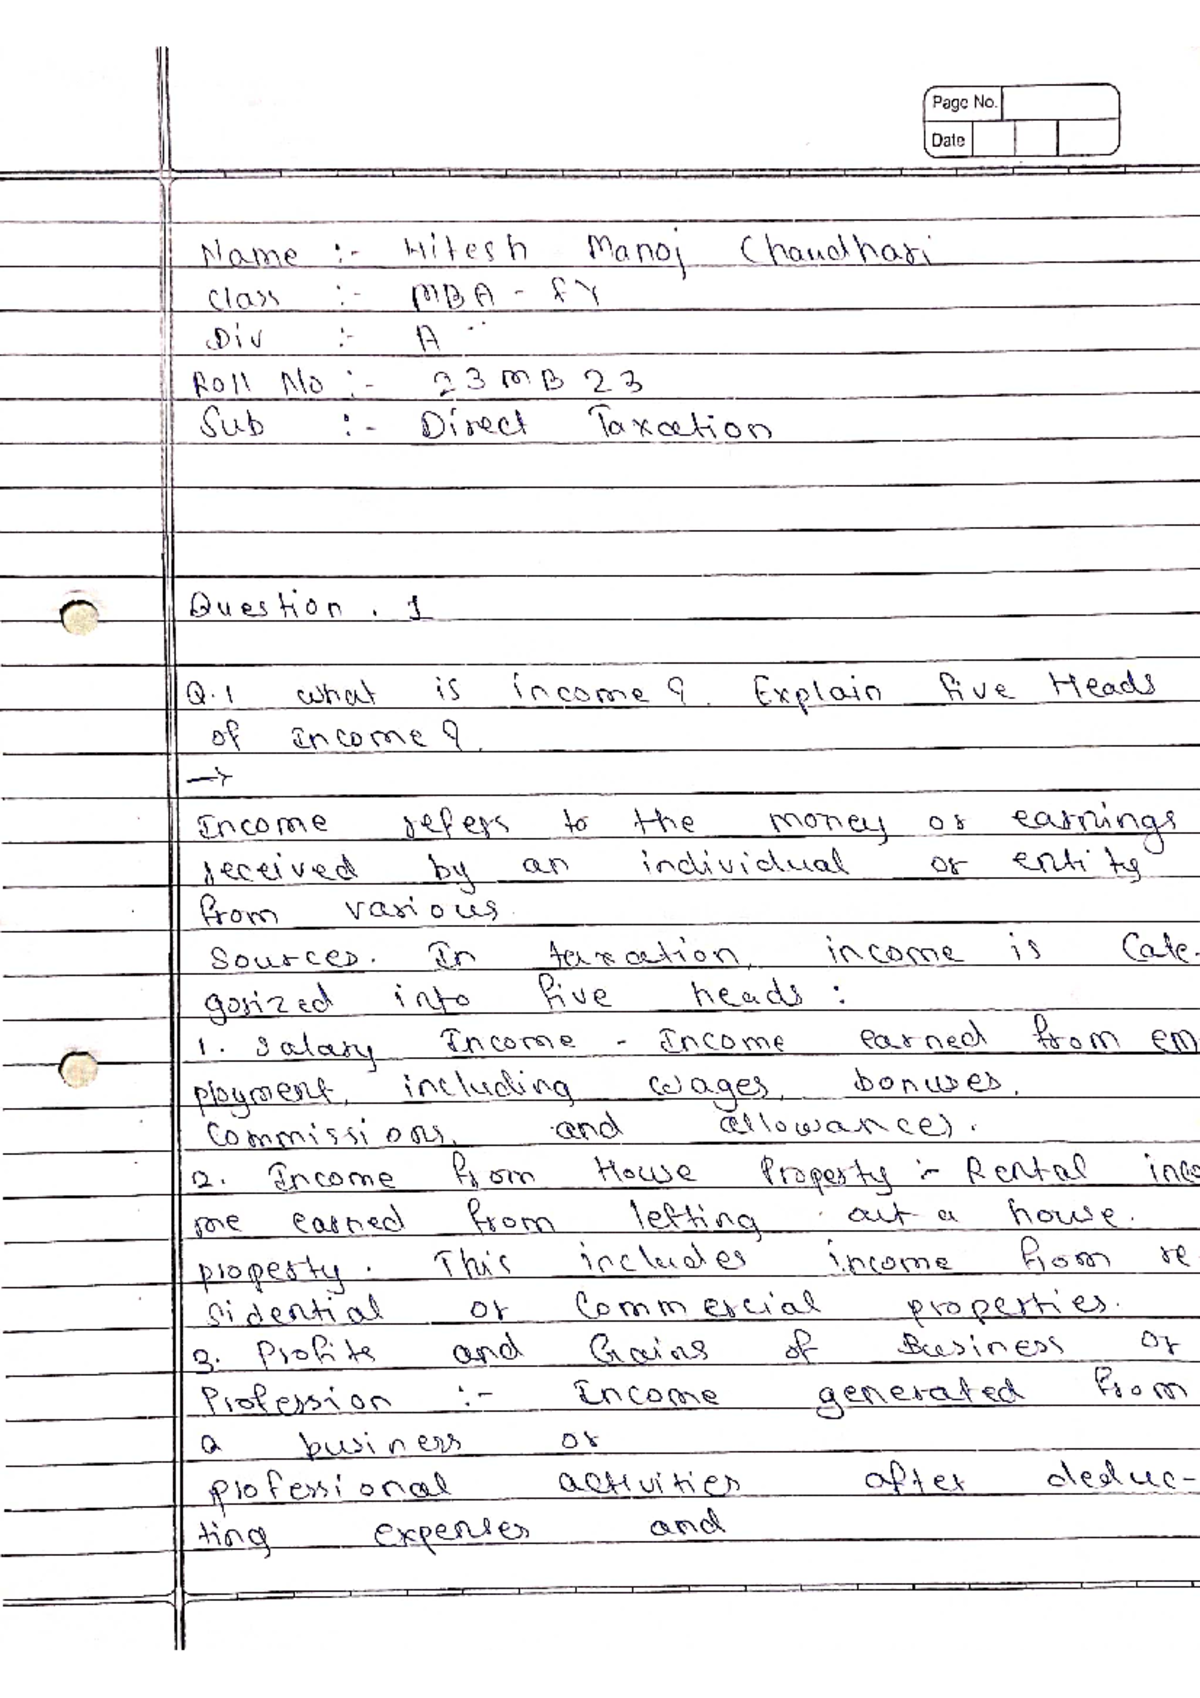 Page No.
Date
Name :- Hitesh Manoj Chaudhari
Class :- MBA - FY
Div :- A
Roll No :- 23MB23
Sub :- Direct Taxation
Question . 1
Q.1 what is income? Explain five Heads
of Income?
→
Income refers to the money or earnings
received by an individual or entity
from various
Sources. In taxation, income is Cate-
gorized into five heads :
1. Salary Income - Income earned from em
ployment, including wages, bonuses,
Commissions, and allowances.
2. Income from House Property :- Rental inco
me earned from letting out a house.
property. This includes income from re
sidential or Commercial properties.
3. Profits and Gains of Business or
Profession :- Income generated from
a business or
professional activities after deduc-
ting expenses and